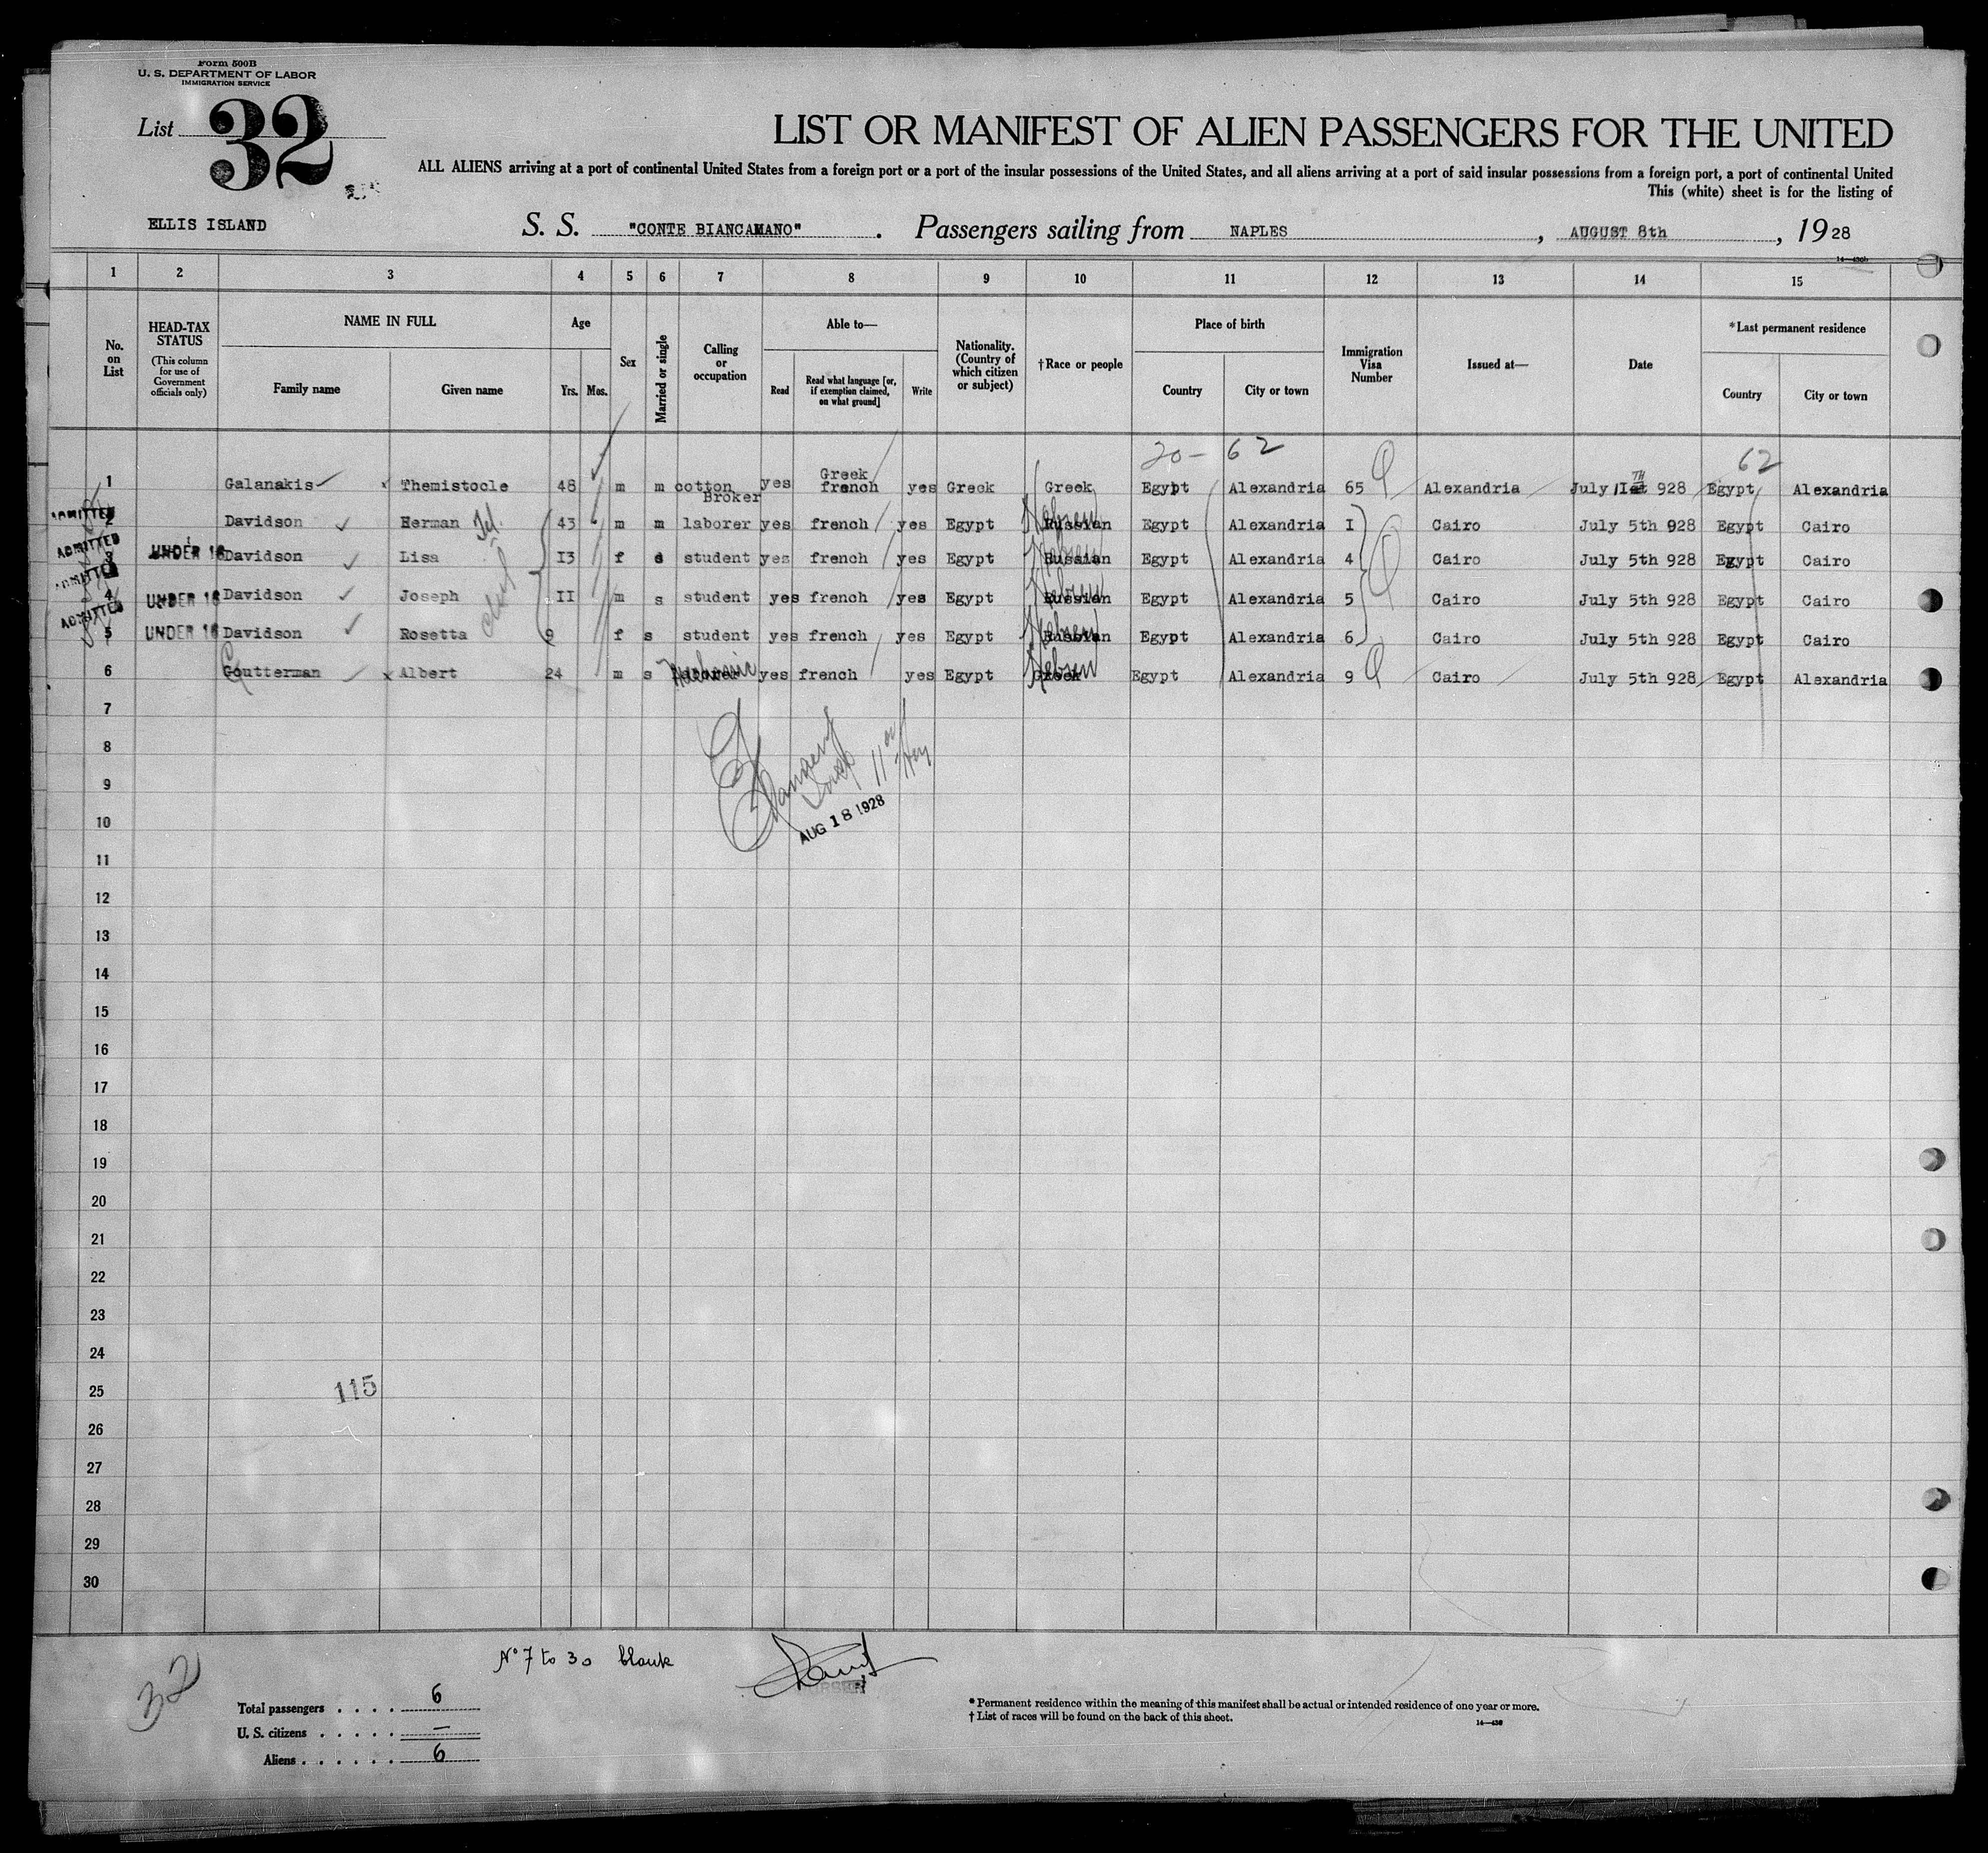 Form 500B
U. S. DEPARTMENT OF LABOR
IMMIGRATION SERVICE
List 32
LIST OR MANIFEST OF ALIEN PASSENGERS FOR THE UNITED
ALL ALIENS arriving at a port of continental United States from a foreign port or a port of the insular possessions of the United States, and all aliens arriving at a port of said insular possessions from a foreign port, a port of continental United
This (white) sheet is for the listing of
ELLIS ISLAND S. S. "CONTE BIANCAMANO". Passengers sailing from NAPLES, AUGUST 8th, 1928
14—430b
1 2 3 4 5 6 7 8 9 10 11 12 13 14 15
No. on List
HEAD-TAX STATUS (This column for use of Government officials only)
NAME IN FULL Family name Given name
Age Yrs. Mos.
Sex
Married or single
Calling or occupation
Able to— Read Read what language [or, if exemption claimed, on what ground] Write
Nationality. (Country of which citizen or subject)
†Race or people
Place of birth Country City or town
Immigration Visa Number
Issued at—
Date
*Last permanent residence Country City or town
20- 62 62
1 Galanakis x Themistocle 48 m m cotton Broker yes Greek french yes Greek Greek Egypt Alexandria 65 Alexandria July 11TH 928 Egypt Alexandria
ADMITTED 2 Davidson Herman 43 m m laborer yes french yes Egypt Russian Hebrew Egypt Alexandria I Cairo July 5th 928 Egypt Cairo
ADMITTED 3 UNDER 16 Davidson Lisa I3 f s student yes french yes Egypt Russian Hebrew Egypt Alexandria 4 Cairo July 5th 928 Egypt Cairo
ADMITTED 4 UNDER 16 Davidson Joseph II m s student yes french yes Egypt Russian Hebrew Egypt Alexandria 5 Cairo July 5th 928 Egypt Cairo
ADMITTED 5 UNDER 16 Davidson Rosetta 9 f s student yes french yes Egypt Russian Hebrew Egypt Alexandria 6 Cairo July 5th 928 Egypt Cairo
6 Goutterman x Albert 24 m s Mechanic yes french yes Egypt Greek Hebrew Egypt Alexandria 9 Cairo July 5th 928 Egypt Alexandria
7
8
9
10
AUG 18 1928
11
12
13
14
15
16
17
18
19
20
21
22
23
24
25
115
26
27
28
29
30
N° 7 to 30 blank
32
Total passengers . . . . 6
U. S. citizens . . . . . —
Aliens . . . . . . 6
* Permanent residence within the meaning of this manifest shall be actual or intended residence of one year or more.
† List of races will be found on the back of this sheet.
14—430